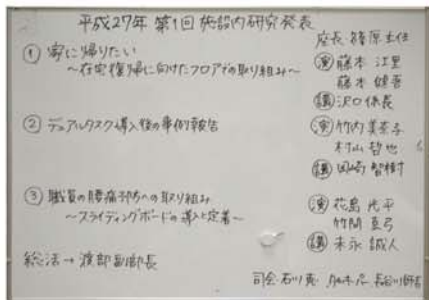 平成27年 第1回 施設内研究発表
座長 篠原主任
① 家に帰りたい
～在宅復帰に向けたフロアでの取り組み～
演 藤本 江里
藤本 健吾
講 沢口係長
② デュアルタスク導入後の事例報告
演 竹内 美奈子
村山 哲也
講 岡崎 智樹
③ 職員の腰痛予防への取り組み
～スライディングボードの導入と定着～
演 花島 洸平
竹間 真弓
講 末永 誠人
総活→渡部副部長
司会 石川 真
長谷川